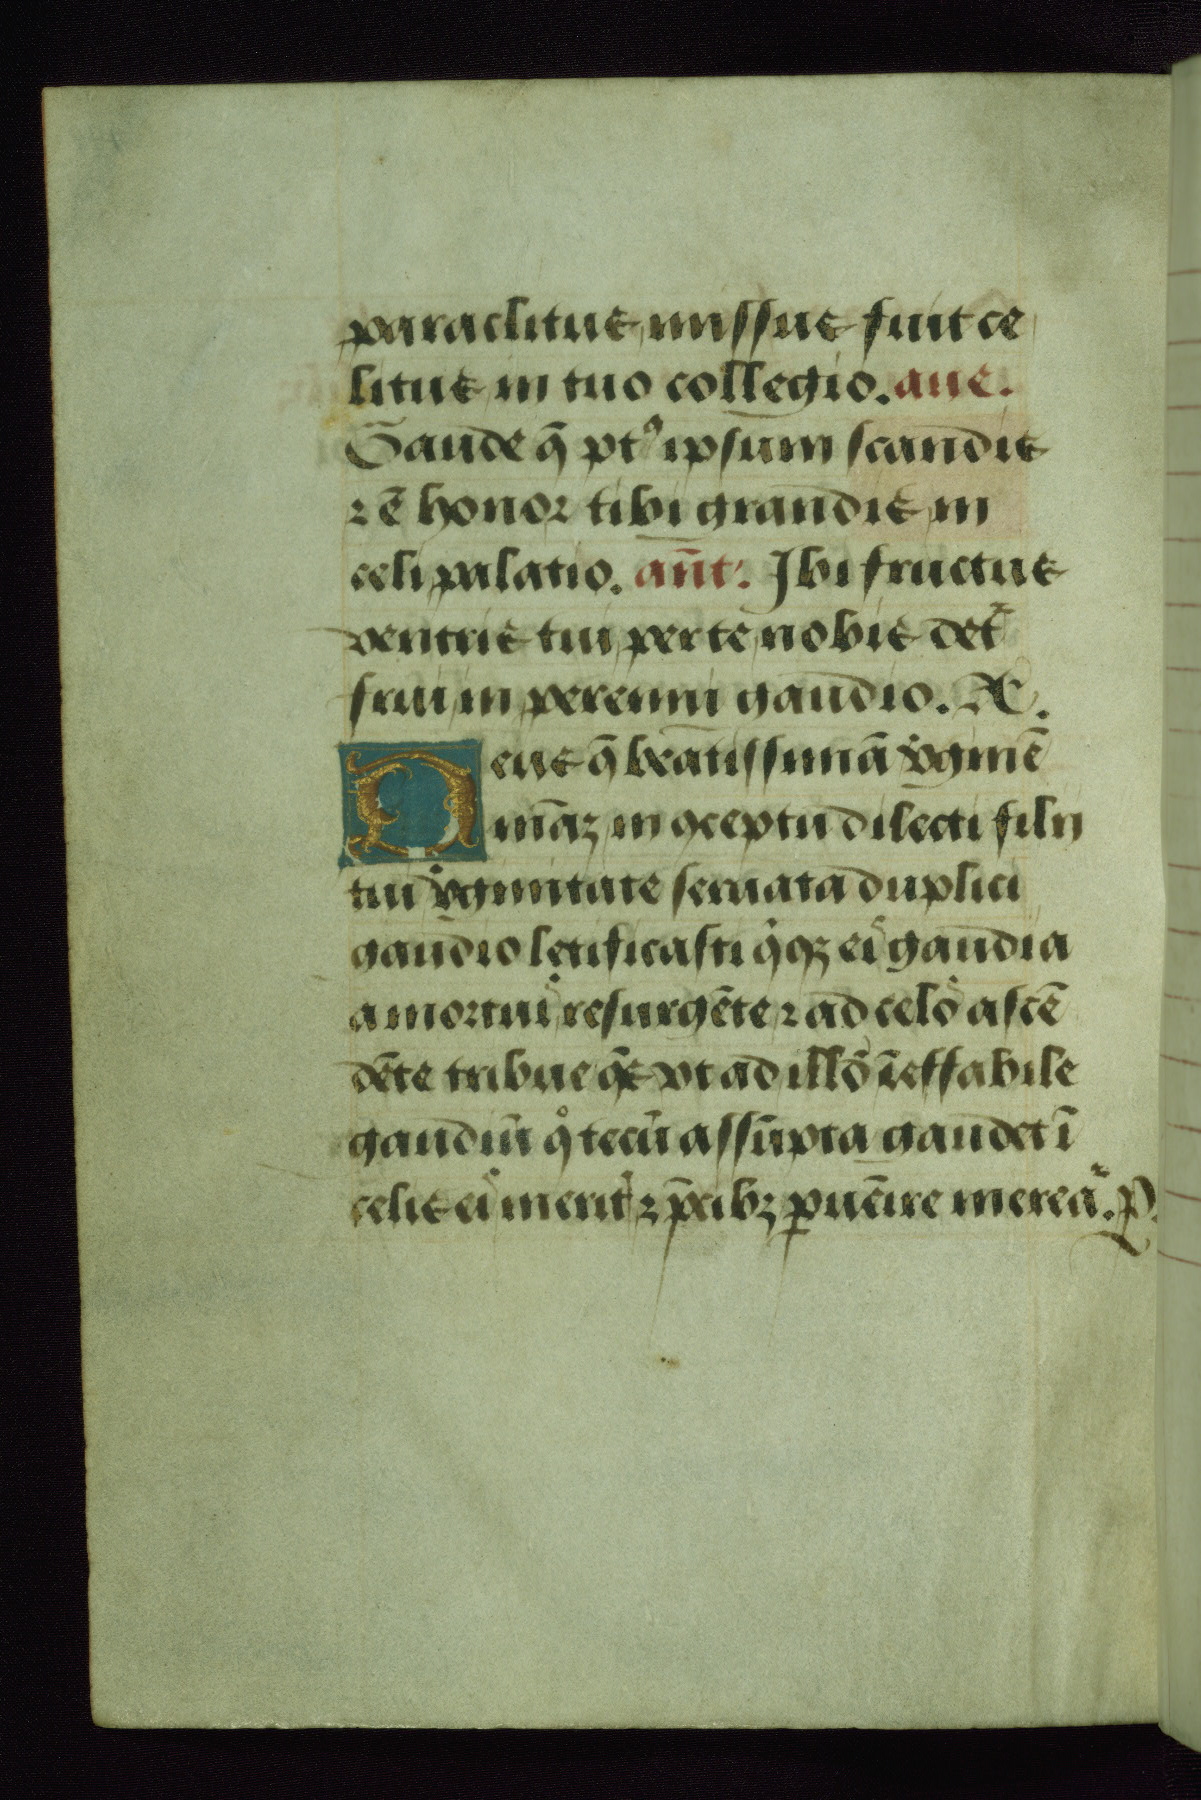 paraclitus missus fuit ce
litus in tuo collegio. aue.
Gaude q̄ pꝰt ipsum scandis
⁊ ē honor tibi grandis in
celi palatio. an̄t. Ibi fructus
ventris tui per te nobis det᷑
frui in perenni gaudio. A.
Deus q̄ beatissimā v̊ginē
mr̄aꝫ in ꝯceptu dilecti filii
tui v̊ginitate seruata duplici
gaudio letificasti q̊qꝫ eiꝰ gaudia
a mortuiꝰ resurgēte ⁊ ad celoꝰ ascē
dēte tribue q̄s vt ad illō īeffabile
gaudiū qͦ tecū assūpta gaudet ī
celis eiꝰ meritꝰ ⁊ p̄cibꝫ ꝑuēire mereaᷓ. P.